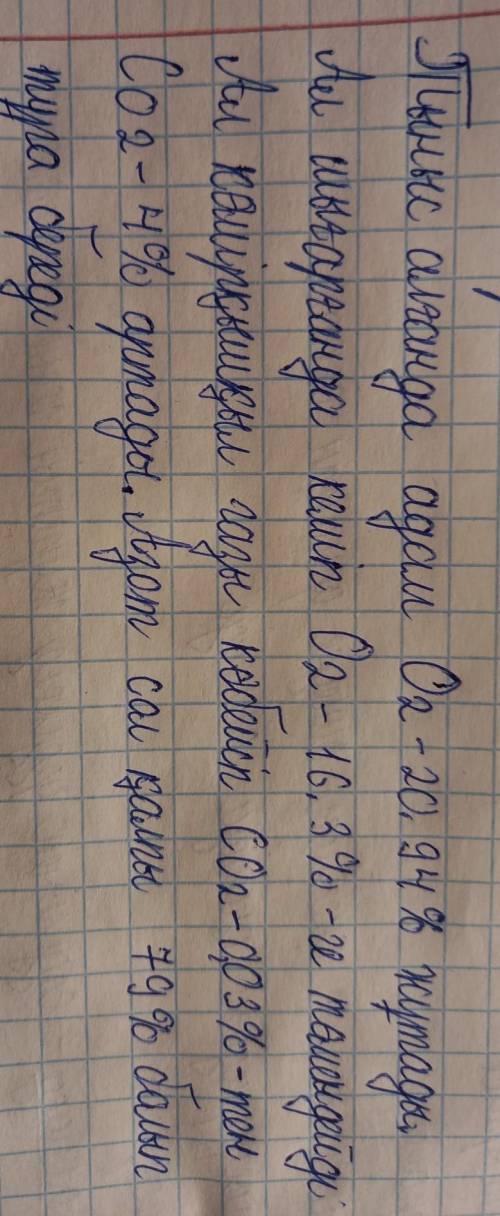 Тыныс алғанда адам O2-20,94% жұтады,
Ал шығарғанда кеміп O2-16,3%-ге төмендейді
Ал көмірқышқыл газы көбейіп CO2-0,03%-тен
CO2-4% артады. Азот сол қалпы 79% болып
тұра береді